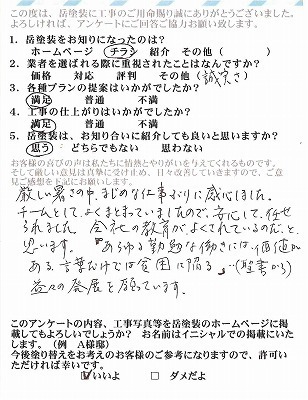 この度は、岳塗装に工事のご用命賜り誠にありがとうございました。
よろしければ、アンケートにご回答ご協力お願い致します。
1. 岳塗装をお知りになったのは?
ホームページ チラシ 紹介 その他( )
2. 業者を選ばれる際に重視されたことはなんですか?
価格 対応 評判 その他(誠実さ)
3. 各種プランの提案はいかがでしたか?
満足 普通 不満
4. 工事の仕上がりはいかがでしたか?
満足 普通 不満
5. 岳塗装は、お知り合いに紹介しても良いと思いますか?
思う どちらでもない 思わない
お客様の喜びの声は私たちに情熱とやりがいを与えてくれるものです。
そして厳しい意見は真摯に受け止め、日々改善していきますので、ご意
見ご感想を下記にお願いします。
厳しい暑さの中、まじめな仕事ぶりに感心しました。
チームとして、よくまとまっていましたので、安心して、任せ
られました。会社の教育が、よくされているのだ、と
思います。 あらゆる勤勉な働きには、価値が
ある、言葉だけでは貧困に陥る…(聖書から)
益々の発展を願っています。
このアンケートの内容、工事写真等を岳塗装のホームページに掲
載してもよろしいでしょうか? お名前はイニシャルでの掲載にい
たします。(例 A様邸)
今後塗り替えをお考えのお客様のご参考になりますので、許可い
ただければ幸いです。
☑いいよ □ ダメだよ